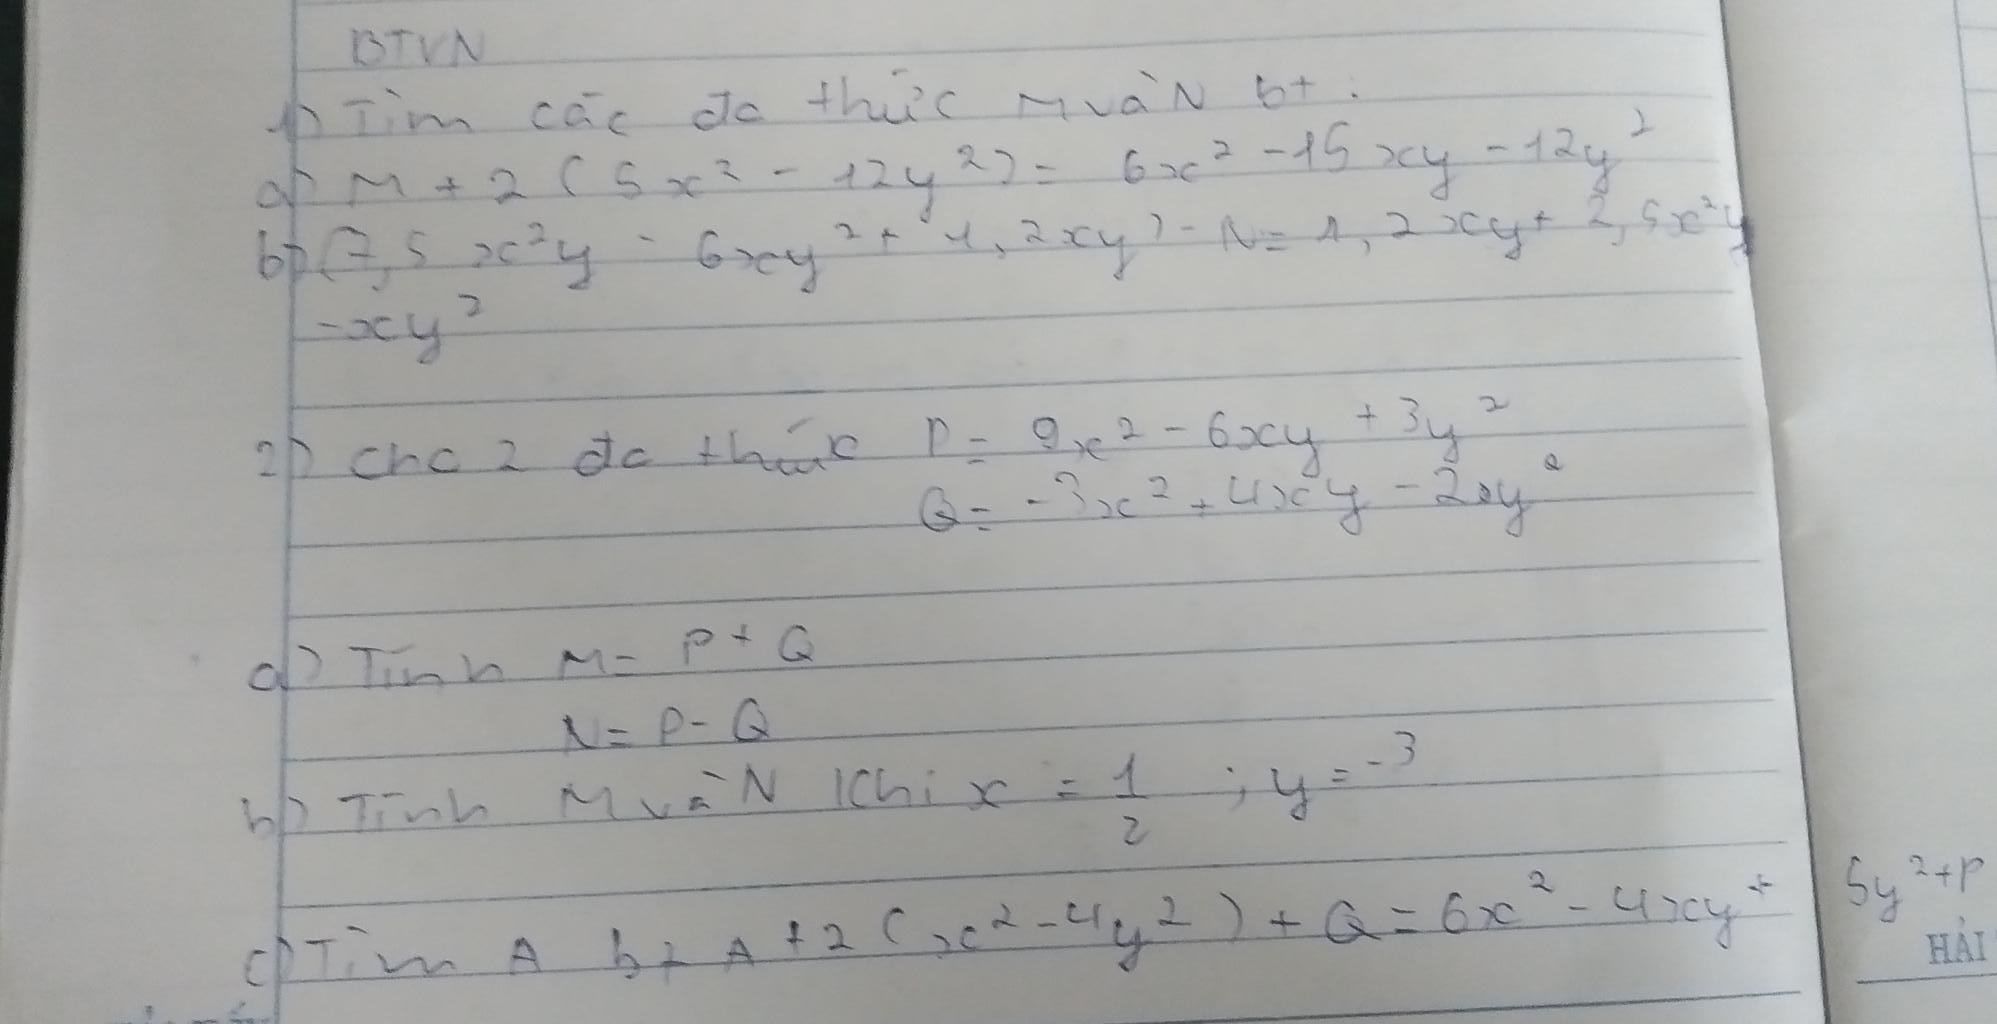 BTVN
1) Tìm các đa thức M và N bt :
a) M + 2 ( 5x² - 12y²) = 6x² - 15xy - 12y²
b) (7,5 x²y - 6xy² + 1,2xy) - N = 1,2xy + 2,5x²y
- xy²
2) cho 2 đa thức P = 9x² - 6xy + 3y²
Q = -3x² + 4xy - 2y²
a) Tính M = P + Q
N = P - Q
b) Tính M và N khi x = 1/2 ; y = -3
c) Tìm A bt A + 2 (x² - 4y²) + Q = 6x² - 4xy + 5y² + P
HẢI